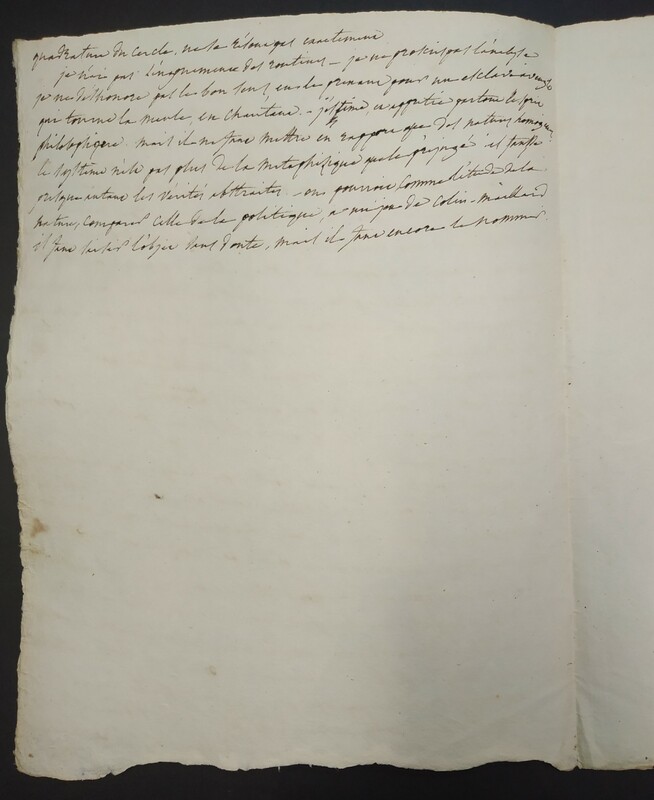 quadrature du cercle. ne se résout pas exactement
je n'ai pas l'inexperience des routines — je ne proscris pas l'analyse
je ne deshonore pas le bon sens, en le prenant pour un esclave aveugle
qui tourne la meule, en chantant. - j'estime, et apprécie partout l'esprit
philosophique. mais il ne faut mettre en rapport que des natures homogenes
le systême n'est pas plus de la metaphisique que le préjugé et fausse
presque autant les vérités abstraites. - on pourroit comme l'étude de la
nature, comparer celle de la politique, a un jeu de colin-maillard
il faut saisir l'objet sans doute, mais il faut encore le nommer.